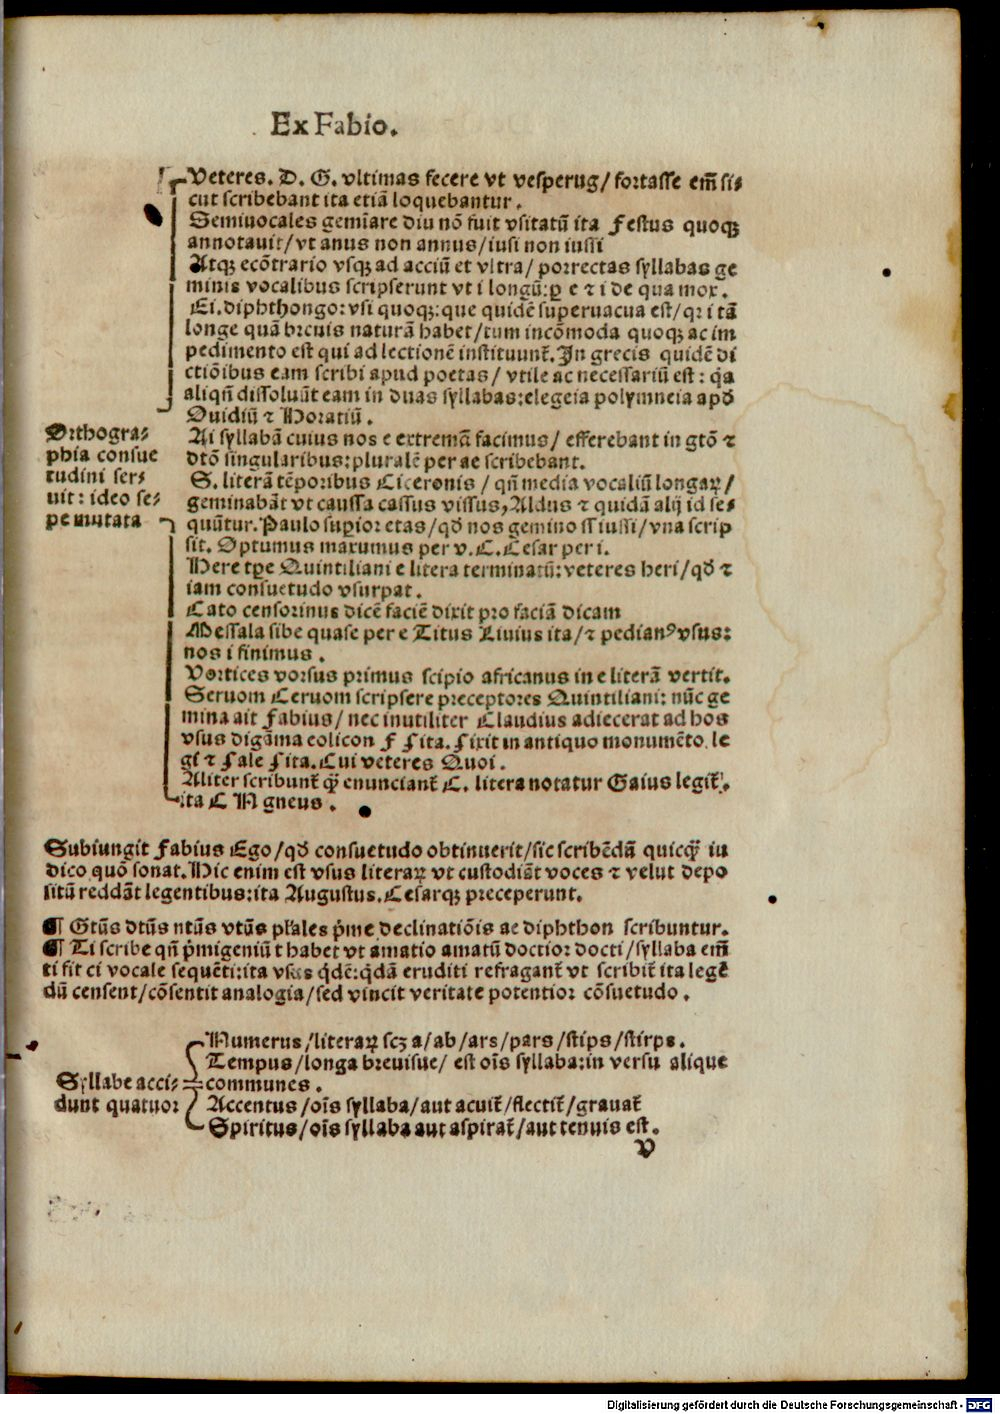 Ex Fabio.
Veteres. D. G. vltimas fecere vt vesperug/ fortasse em̄ si⸗
cut scribebant ita etiā loquebantur.
Semiuocales gemiare diu nō fuit vsitatū ita Festus quoqꝫ
annotauit/ vt anus non annus/ iusi non iussi
Atqꝫ ecōtrario vsqꝫ ad acciū et vltra/ porrectas syllabas ge
minis vocalibus scripserunt vt i longū: ꝑ e ⁊ i de qua mox.
Ei. diphthongo: vsi quoqꝫ: que quidē superuacua est/ qꝛ i tā
longe quā breuis naturā habet/ tum incōmoda quoqꝫ ac im
pedimento est qui ad lectionē instituunt̄. In grecis quidē di
ctiōibus eam scribi apud poetas/ vtile ac necessariū est: q̄a
aliqn̄ dissoluūt eam in duas syllabas: elegeia polymneia apd̄
Ouidiū ⁊ Horatiū.
Orthogra⸗
phia consue
tudini ser⸗
uit: ideo se⸗
pe mutata
Ai syllabā cuius nos e extremā facimus/ efferebant in gtō ⁊
dtō singularibus: pluralē per ae scribebant.
S. literā tēporibus Ciceronis/ qn̄ media vocaliū longaꝝ/
geminabāt vt caussa cassus vissus, Aldus ⁊ quidā alij id se⸗
quūtur. Paulo superior etas/ qd̄ nos gemino ss iussi/ vna scrip
sit. Optumus maxumus per v. C. Cesar per i.
Here tp̄e Quintiliani e litera terminatū: veteres heri/ qd̄ ⁊
iam consuetudo vsurpat.
Cato censorinus dicē faciē dixit pro faciā dicam
Messala sibe quase per e Titus Liuius ita/ ⁊ pedianꝰ vsus:
nos i finimus.
Vortices vorsus primus scipio africanus in e literā vertit.
Seruom Ceruom scripsere preceptores Quintiliani: nūc ge
mina ait Fabius/ nec inutiliter Claudius adiecerat ad hos
vsus digāma eolicon F Fita. Fixit in antiquo monumēto. le
gi ⁊ Fale Fita. Cui veteres Quoi.
Aliter scribunt̄ qꝫ̄ enunciant̄ C. litera notatur Gaius legit̄.
ita C N gneus.
Subiungit Fabius Ego/ qd̄ consuetudo obtinuerit/ sic scribēdā quicqꝫ̄ iu
dico quō sonat. Hic enim est vsus literaꝝ vt custodiāt voces ⁊ velut depo
sitū reddāt legentibus: ita Augustus. Cesarqꝫ preceperunt.
¶ Gtūs dtūs ntūs vtūs pl̄ales p̄me declinatiōis ae diphthon scribuntur.
¶ Ti scribe qn̄ p̄migeniū t habet vt amatio amatū doctior docti/ syllaba em̄
ti fit ci vocale sequēti: ita vsus q̄dē: q̄dā eruditi refragant̄ vt scribit̄ ita legē
dū censent/ cōsentit analogia/ sed vincit veritate potentior cōsuetudo.
Syllabe acci⸗
dunt quatuor
Numerus/ literaꝝ scꝫ a/ ab/ ars/ pars/ stips/ stirps.
Tempus/ longa breuisue/ est oīs syllaba: in versu alique
communes.
Accentus/ oīs syllaba/ aut acuit̄/ flectit̄/ grauat̄
Spiritus/ oīs syllaba aut aspirat̄/ aut tenuis est.
V
Digitalisierung gefördert durch die Deutsche Forschungsgemeinschaft - DFG